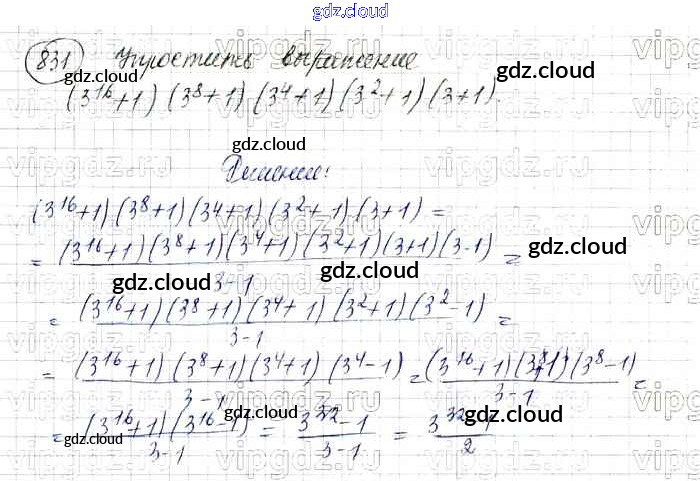 gdz.cloud
831 Упростить выражение
vipgdz.ru vipgdz.ru
gdz.cloud gdz.cloud
(3^16+1)(3^8+1)(3^4+1)(3^2+1)(3+1).
gdz.cloud
vipgdz.ru vipgdz.ru
Решение:
gdz.cloud
(3^16+1)(3^8+1)(3^4+1)(3^2+1)(3+1) =
= (3^16+1)(3^8+1)(3^4+1)(3^2+1)(3+1)(3-1) / 3-1 =
gdz.cloud gdz.cloud
gdz.cloud gdz.cloud
= (3^16+1)(3^8+1)(3^4+1)(3^2+1)(3^2-1) / 3-1 =
vipgdz.ru vipgdz.ru
= (3^16+1)(3^8+1)(3^4+1)(3^4-1) / 3-1 = (3^16+1)(3^8+1)(3^8-1) / 3-1 =
gdz.cloud gdz.cloud
= (3^16+1)(3^16-1) / 3-1 = 3^32-1 / 3-1 = 3^32-1 / 2
gdz.cloud gdz.cloud
vipgdz.ru vipgdz.ru